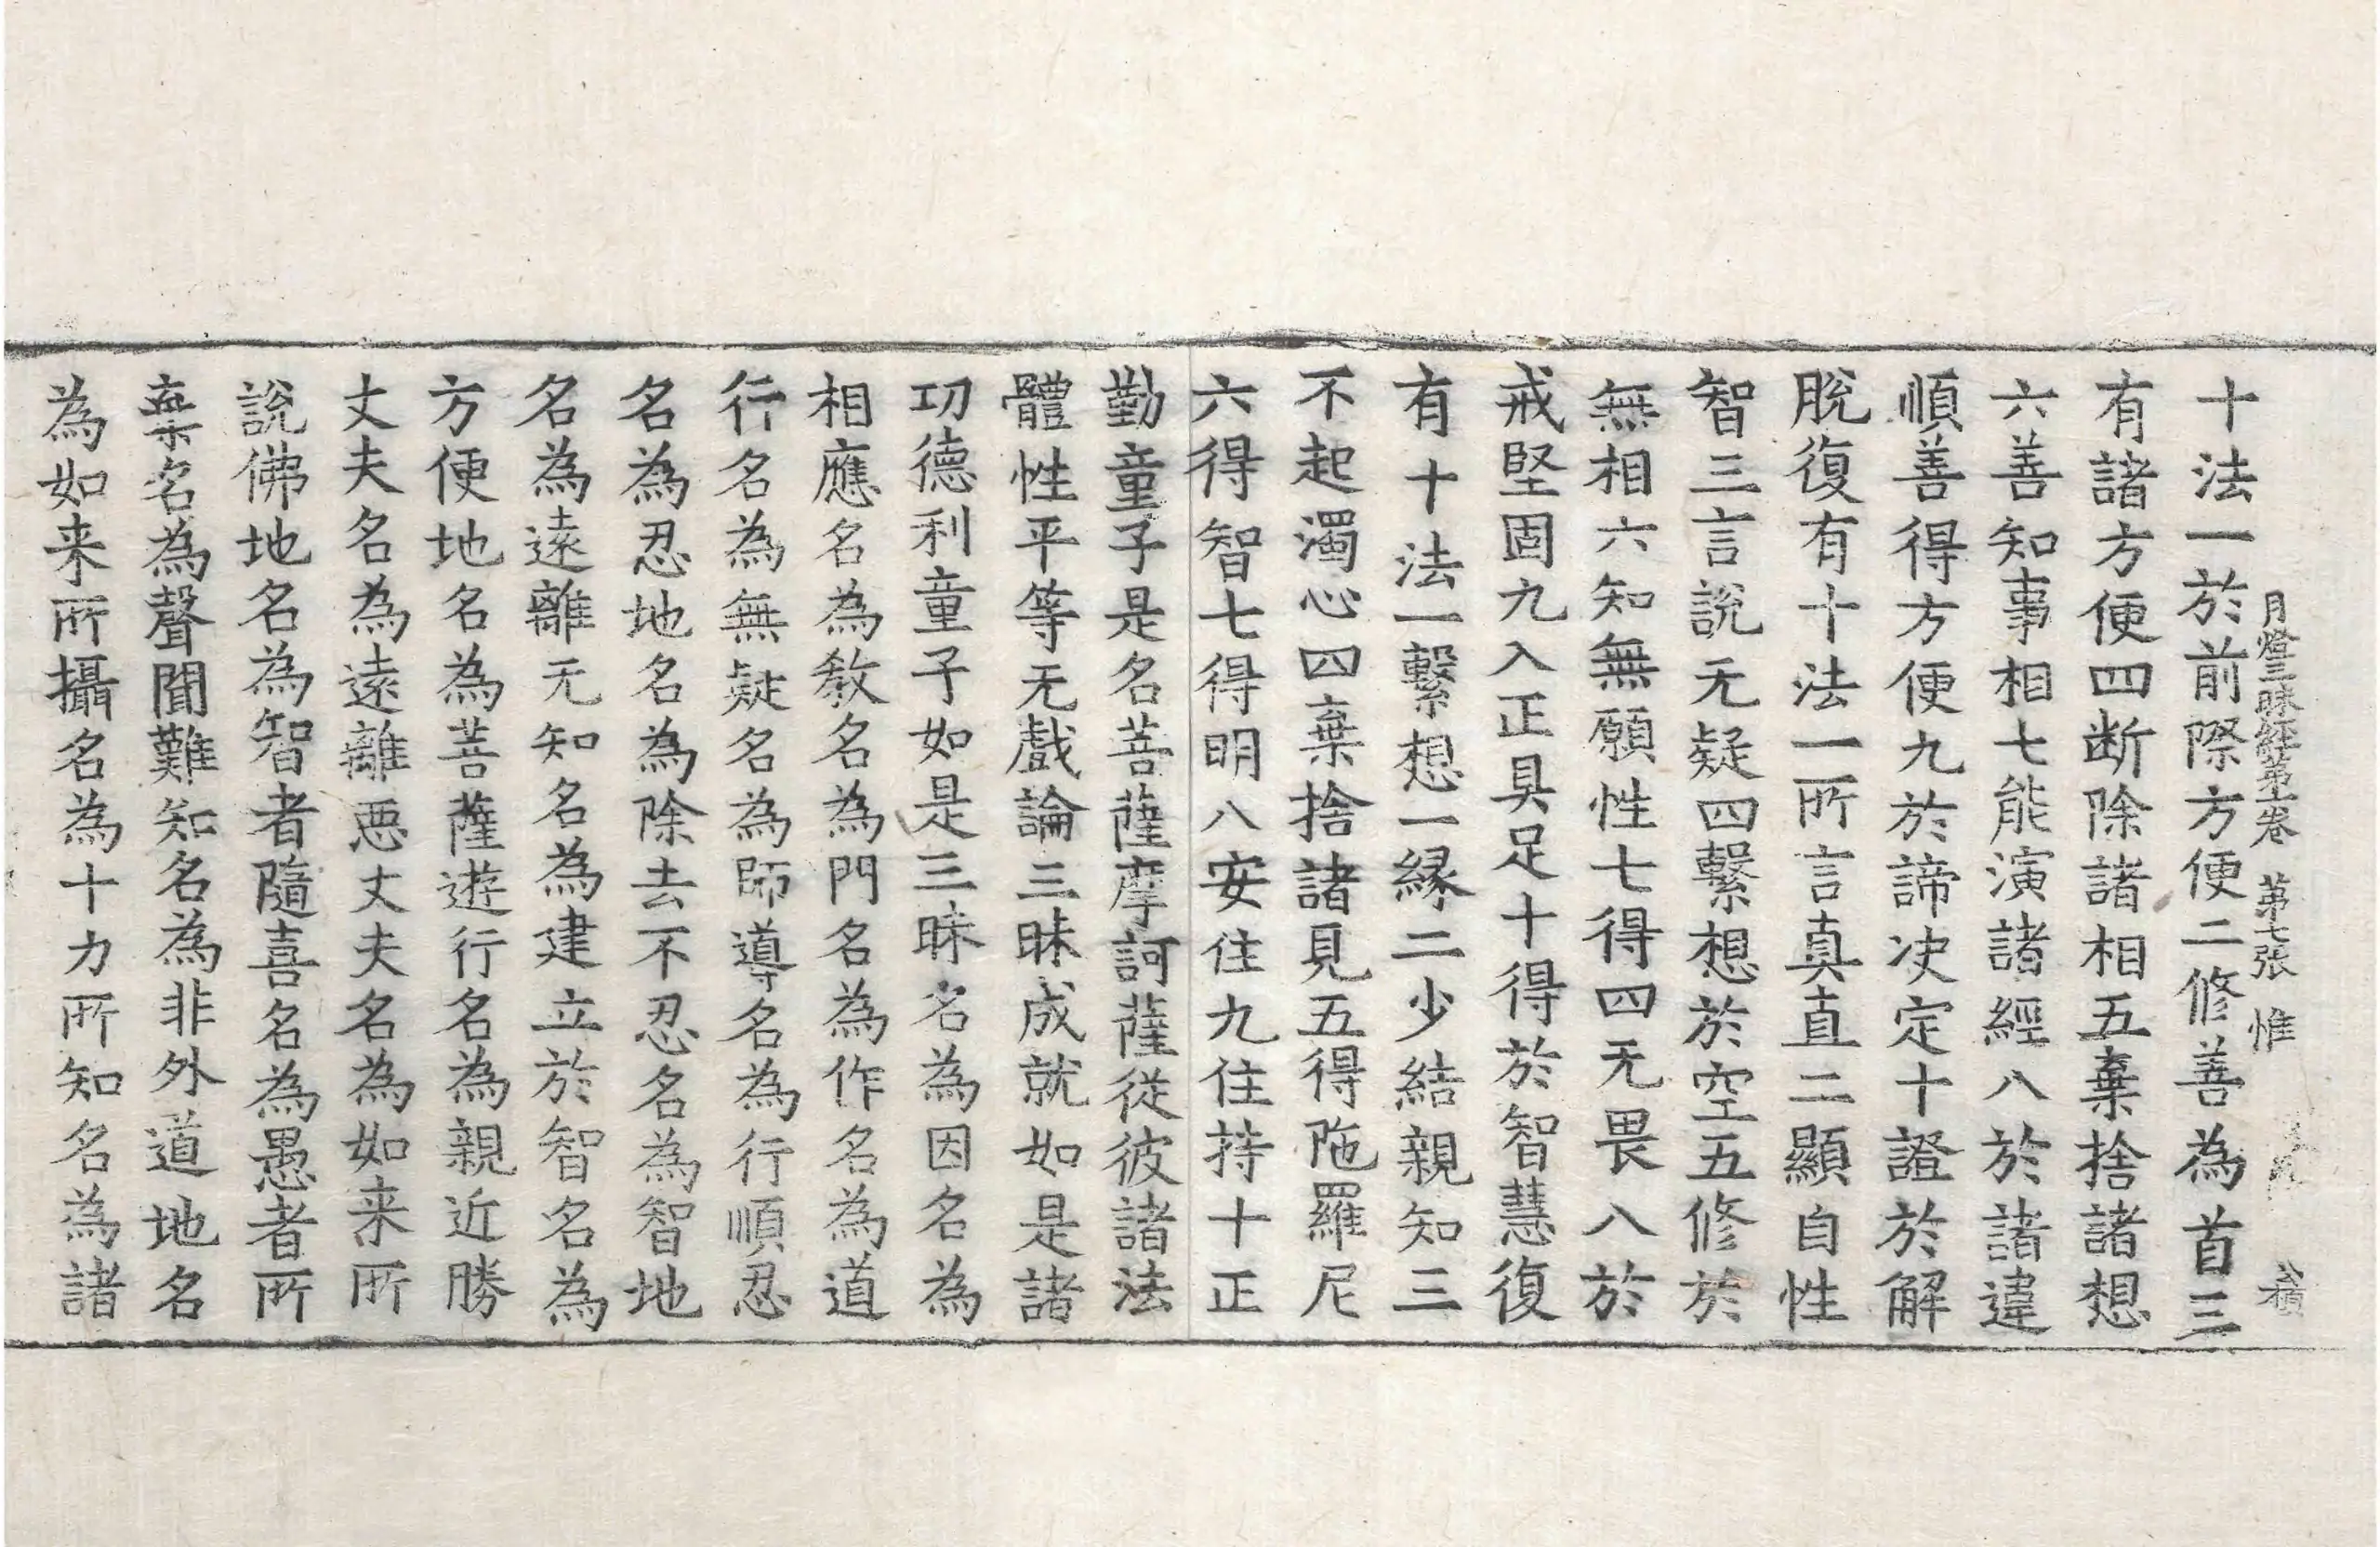 月燈三昧經第一卷 第七張 惟
十法一於前際方便二修善為首三
有諸方便四断除諸相五棄捨諸想
六善知事相七能演諸經八於諸違
順善得方便九於諦決定十證於解
脫復有十法一所言真直二顯自性
智三言說无疑四繫想於空五修於
無相六知無願性七得四无畏八於
戒堅固九入正具足十得於智慧復
有十法一繫想一緣二少結親知三
不起濁心四棄捨諸見五得陁羅尼
六得智七得明八安住九住持十正
勤童子是名菩薩摩訶薩從彼諸法
體性平等无戲論三昧成就如是諸
功德利童子如是三昧名為因名為
相應名為教名為門名為作名為道
行名為無疑名為師導名為行順忍
名為忍地名為除去不忍名為智地
名為遠離无知名為建立於智名為
方便地名為菩薩遊行名為親近勝
丈夫名為遠離惡丈夫名為如来所
說佛地名為智者隨喜名為愚者所
棄名為聲聞難知名為非外道地名
為如来所攝名為十力所知名為諸